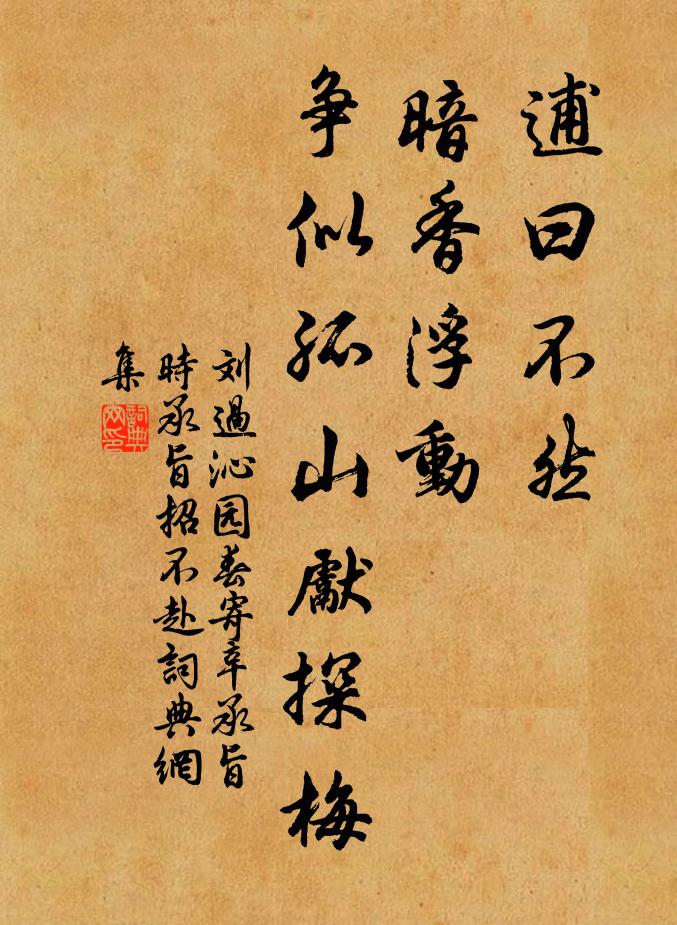 逋曰不然
暗香浮動
争似孤山獻探梅
刘過沁园春寄辛承旨
時承旨招不赴詞典網
集
詞典网印